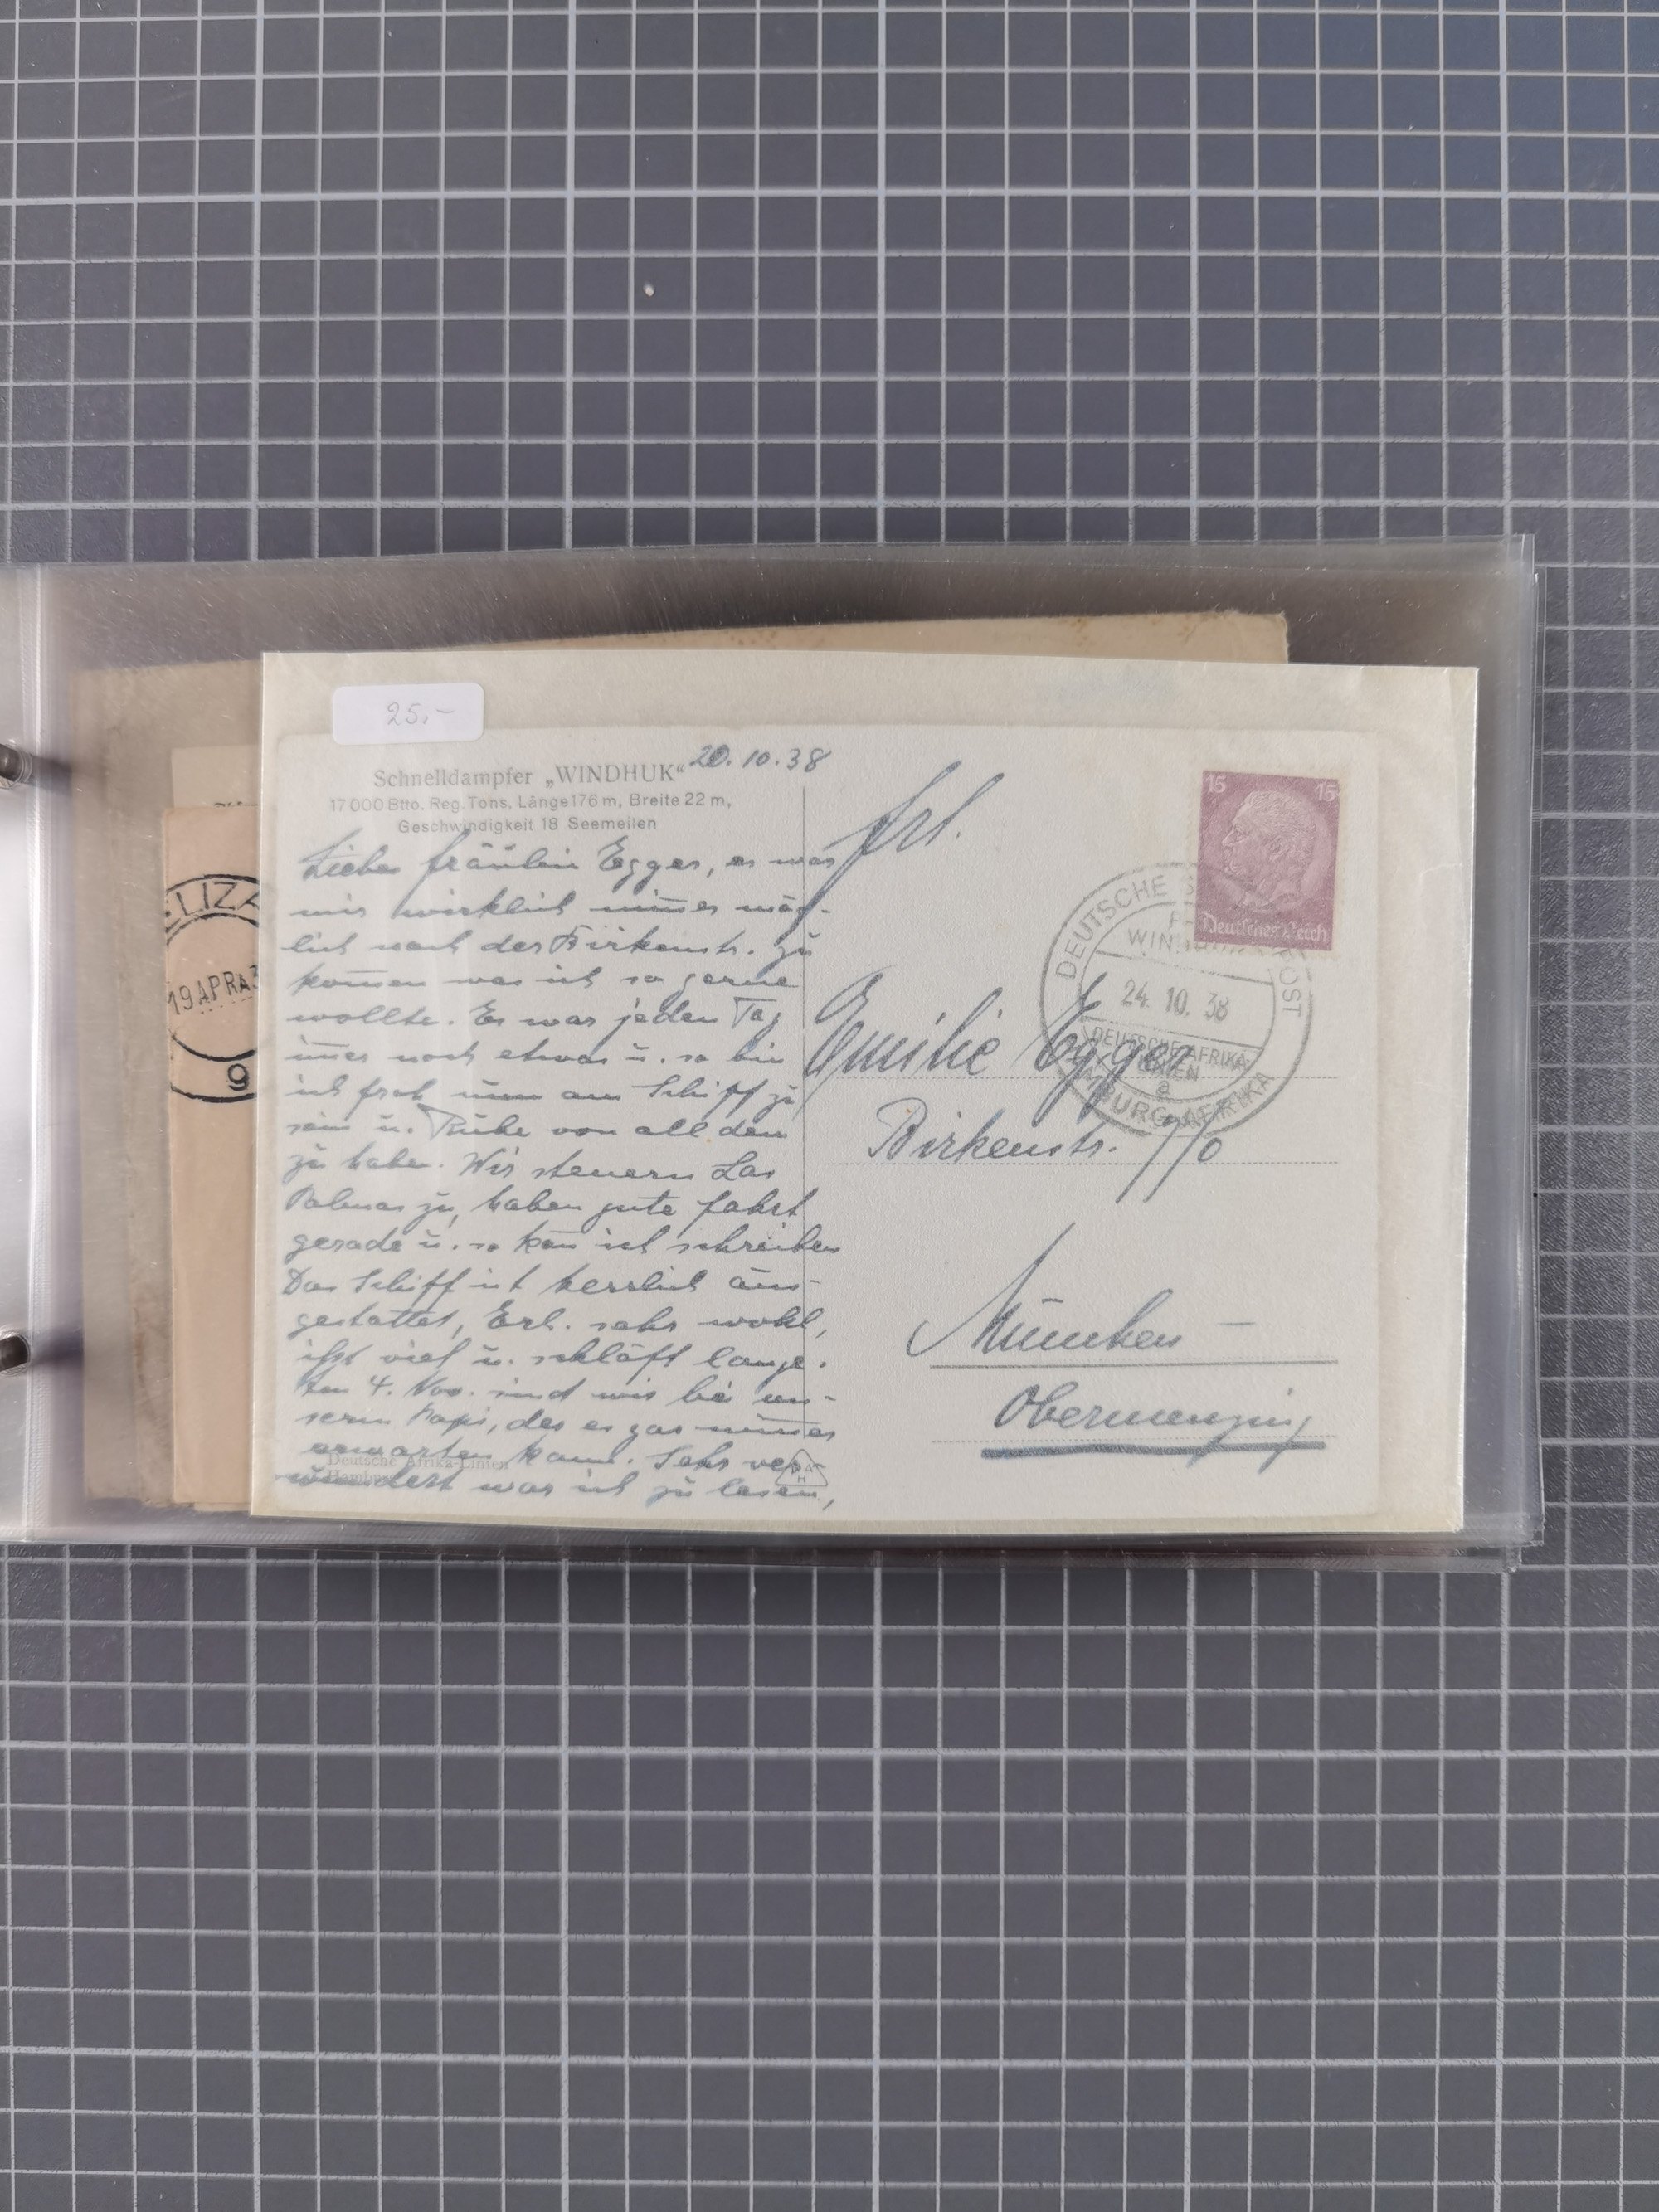 25,-
20.10.38
Schnelldampfer „WINDHUK“
17000 Btto. Reg. Tons, Länge 176 m, Breite 22 m,
Geschwindigkeit 18 Seemeilen
Liebes Fräulein Egger, es war
mir wirklich nimmer mög-
lich nach der Birkenstr. zu
kom̄en was ich so gerne
wollte. Es war jeden Tag
im̄er noch etwas u. so bin
ich froh nun am Schiff zu
sein u. Ruhe von all dem
zu haben. Wir steuern Las
Palmas zu, haben gute Fahrt
gerade u. so kan̄ ich schreiben
Das Schiff ist herrlich aus-
gestattet, Erl. sehr wohl,
ißt viel u. schläft lange.
Am 4. Nov. sind wir bei un-
serm Papi, der es gar nim̄er
erwarten kann. Sehr ver-
wundert war ich zu lesen,
Deutsche Afrika-Linien
Hamburg
Frl.
Emilie Egger
Birkenstr.
München -
Obermenzing
15 15
Deutsches Reich
DEUTSCHE S POST
WIN
24. 10. 38
DEUTSCHE AFRIKA-
LINIEN
a
BURG-AFRIKA
ELIZA
19 APR
9